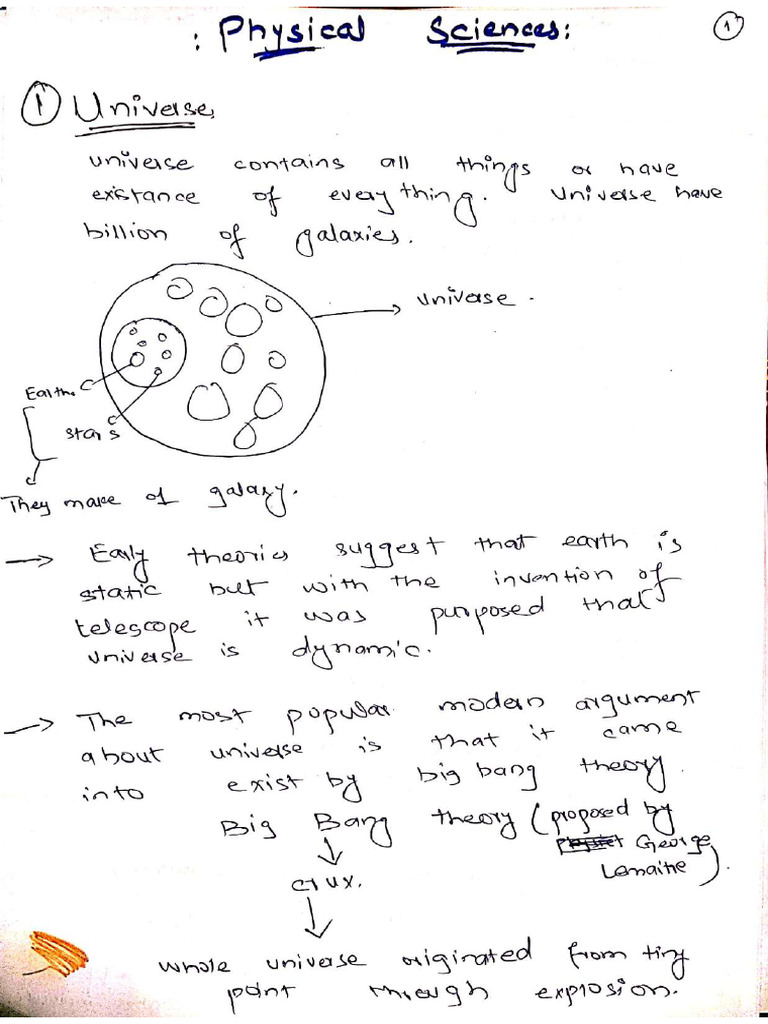 : Physical Sciences: 1
1 Universe,
universe contains all things or have
existance of every thing. Universe have
billion of galaxies.
universe.
Earth.
stars
They make of galaxy.
→ Early theories suggest that earth is
static but with the invention of
telescope it was purposed that
universe is dynamic.
→ The most popular modern argument
about universe is that it came
into exist by big bang theory.
Big Bang theory (proposed by
George
Lemaitre).
crux.
whole universe originated from tiny
point through explosion.